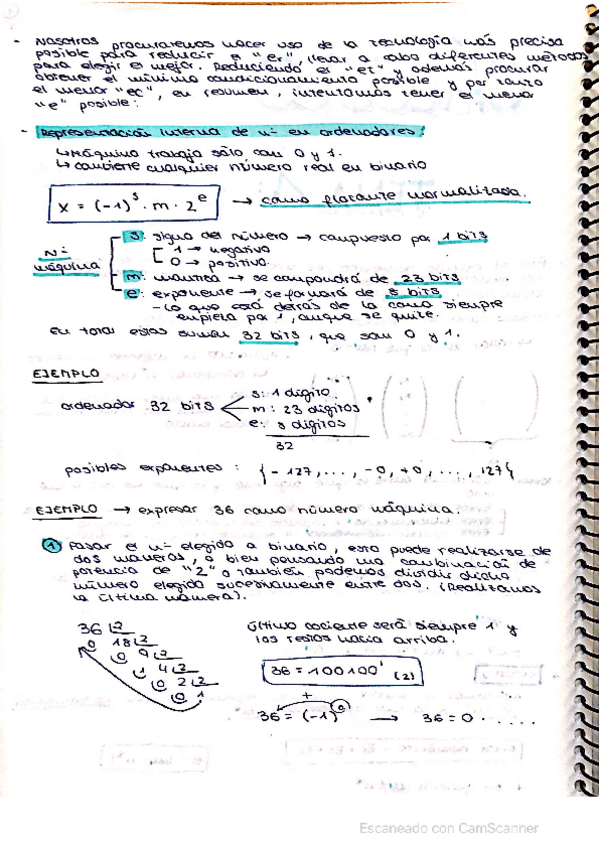 - Nosotros procuraremos hacer uso de la tecnología más precisa
posible para reducir e "er", llevar a cabo diferentes métodos
para elegir el mejor. Reduciendo el "et" y además procurar
obtener el mínimo condicionamiento posible y por tanto
el menor "ec", en resumen, intentamos tener el menor
"e" posible:
- Representación interna de nº en ordenadores:
↳ Máquina trabaja sólo con 0 y 1.
↳ convierte cualquier número real en binario
x = (-1)^s · m · 2^e → coma flotante normalizada.
Nº máquina
s: signo del número → compuesto por 1 bits
1 → negativo
0 → positivo.
m: mantisa → se compondrá de 23 bits
e: exponente → se formará de 8 bits
- lo que está detrás de la coma siempre
empieza por 1, aunque se quite.
En total estas suman 32 bits, que son 0 y 1.
EJEMPLO
ordenador 32 bits
s: 1 dígito.
m: 23 dígitos.
e: 8 dígitos
32
posibles exponentes: {-127, ..., -0, +0, ..., 127}
EJEMPLO → expresar 36 como número máquina.
1 Pasar el nº elegido a binario, esto puede realizarse de
dos maneras, o bien pensando una combinación de
potencia de "2" o también podemos dividir dicho
número elegido sucesivamente entre dos. (Realizamos
la última manera).
36 |2
0 18 |2
0 9 |2
1 4 |2
0 2 |2
0 1
último cociente será siempre 1 y
los restos hacia arriba.
36 = 100100' (2)
+
36 = (-1)^0 → 36 = 0 ......
Escaneado con CamScanner